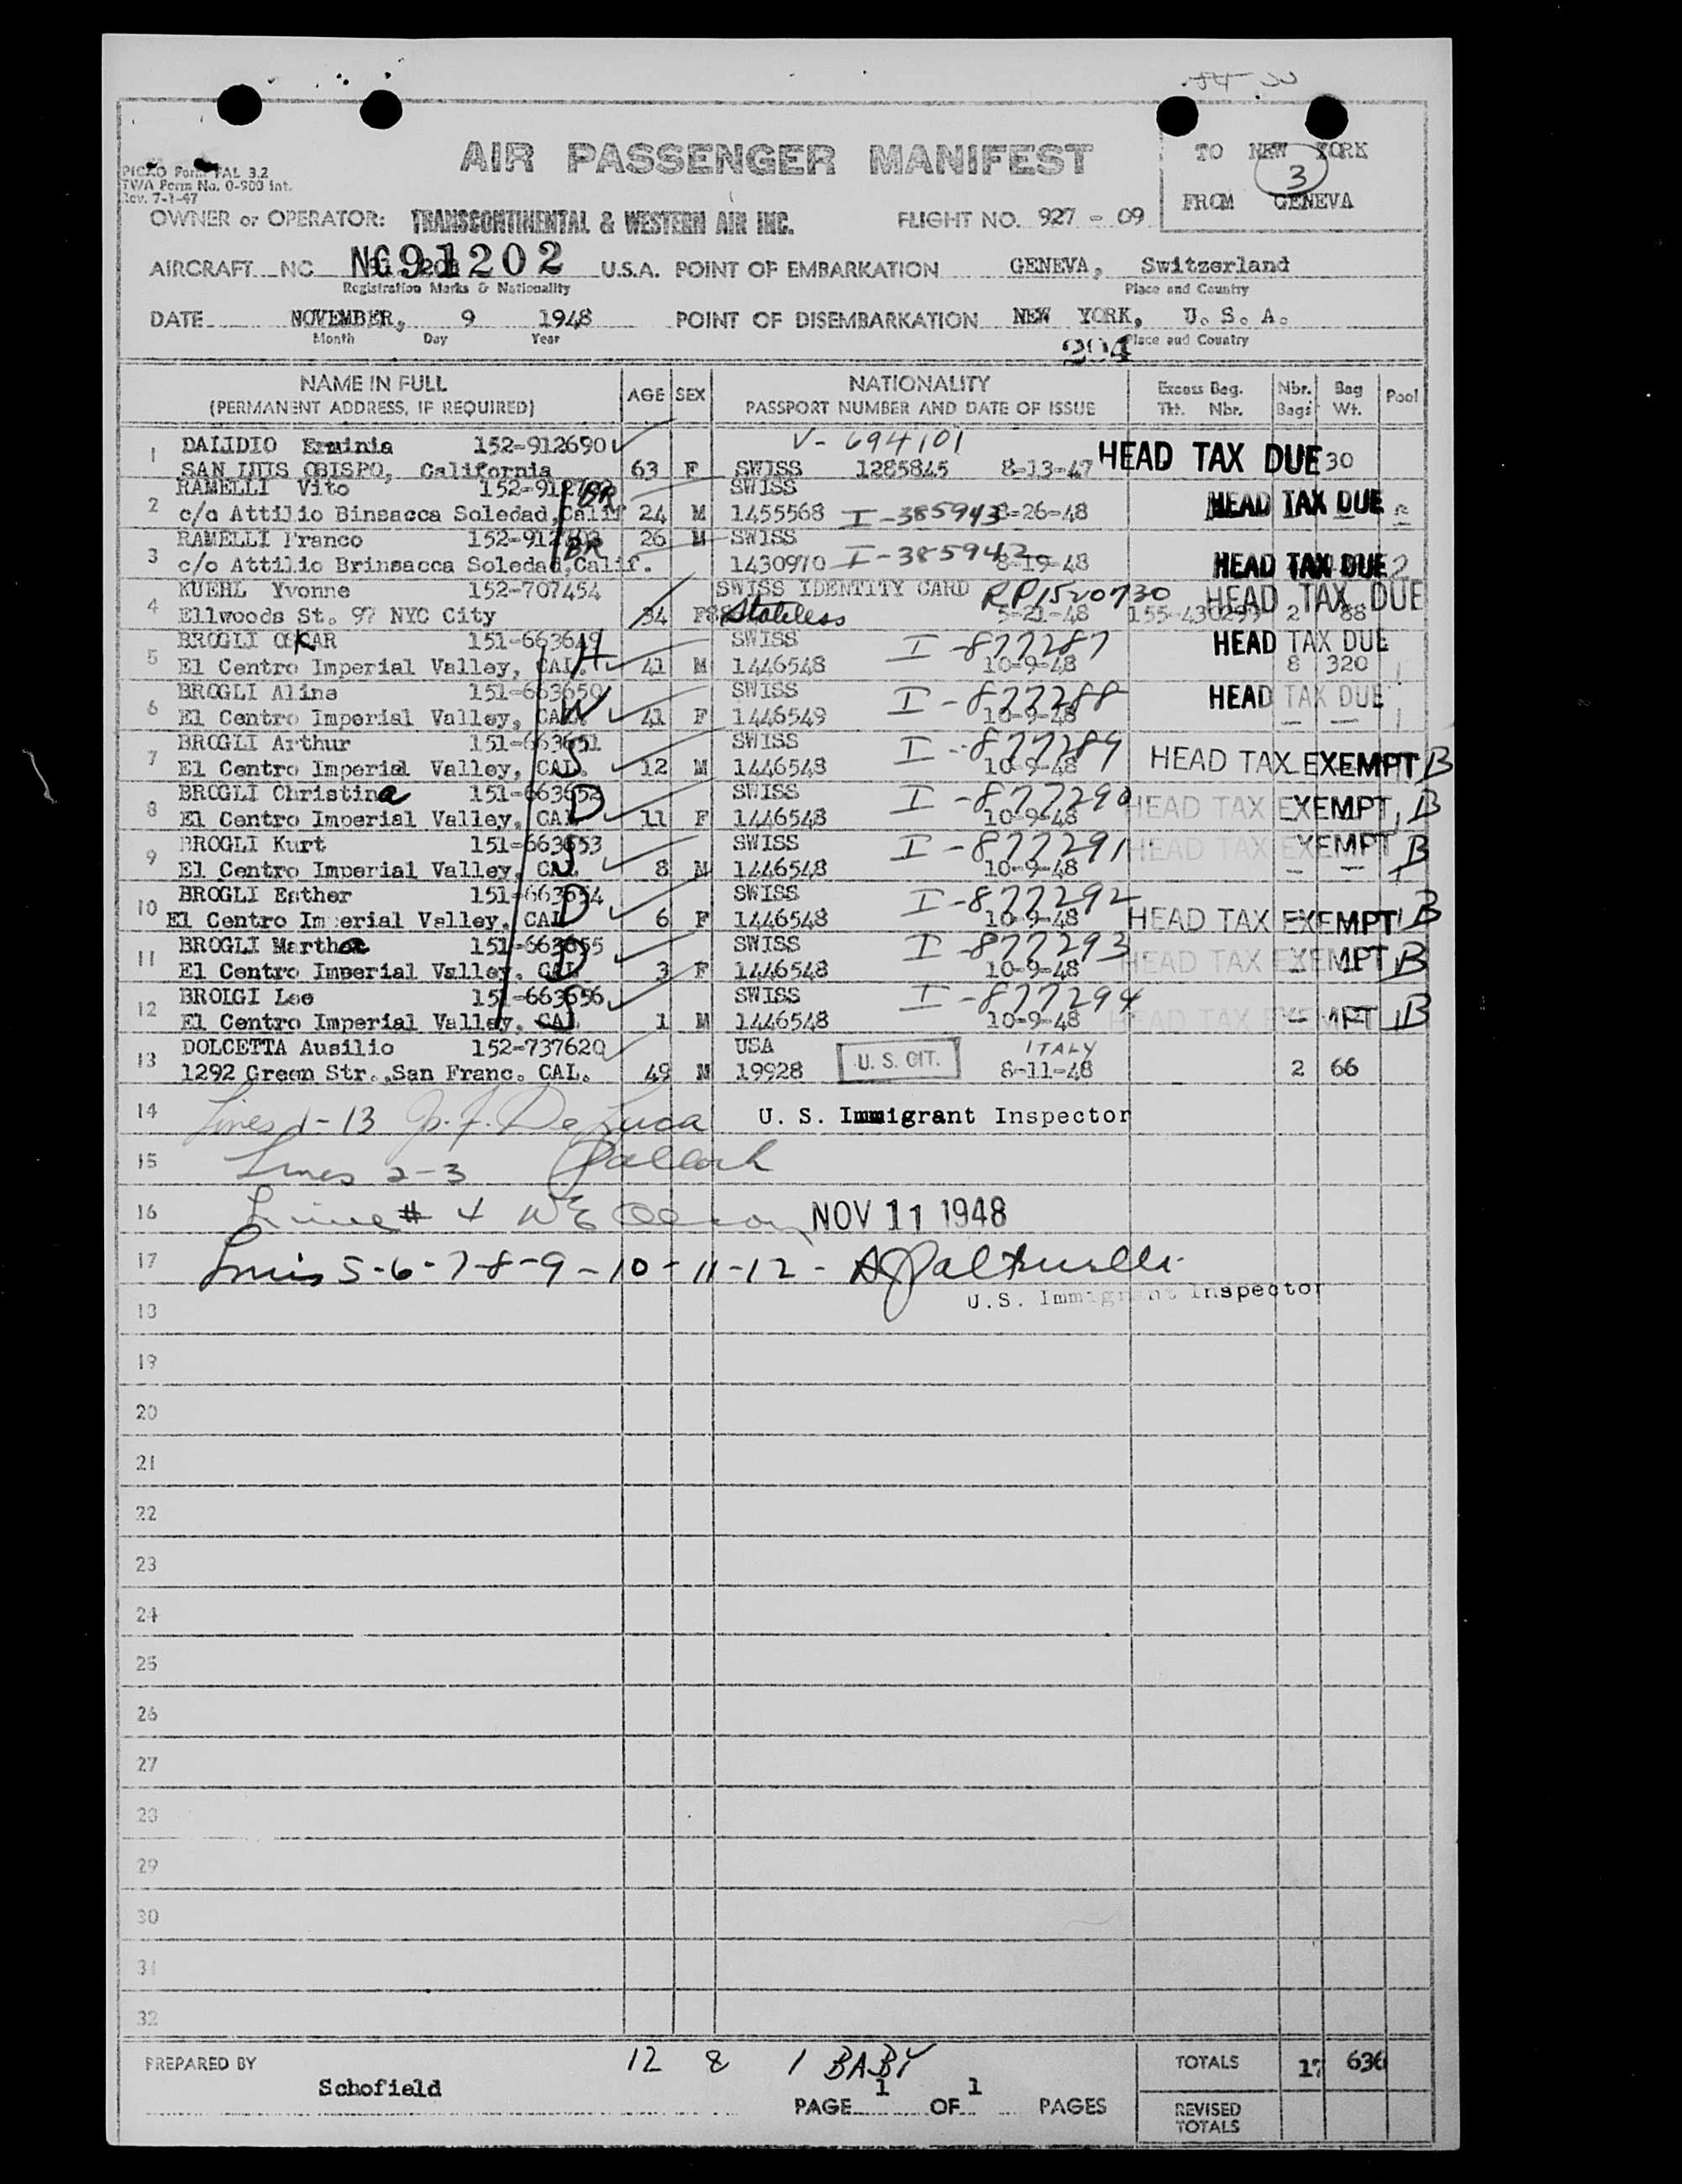 AIR PASSENGER MANIFEST
TO NEW YORK
3
FROM GENEVA
PICAO Form FAL 3.2
TWA Form No. 0-900 Int.
Rev. 7-1-47
OWNER or OPERATOR: TRANSCONTINENTAL & WESTERN AIR INC. FLIGHT NO. 927 - 09
AIRCRAFT NC NC91202 U.S.A. POINT OF EMBARKATION GENEVA, Switzerland
Registration Marks & Nationality Place and Country
DATE NOVEMBER, 9 1948 POINT OF DISEMBARKATION NEW YORK, U. S. A.
Month Day Year 204 Place and Country
NAME IN FULL AGE SEX NATIONALITY Excess Bag. Nbr. Bag Pool
(PERMANENT ADDRESS, IF REQUIRED) PASSPORT NUMBER AND DATE OF ISSUE Tkt. Nbr. Bags Wt.
1 DALIDIO Erminia 152-912690 V-694101 HEAD TAX DUE 30
SAN LUIS OBISPO, California 63 F SWISS 1285845 8-13-47
2 RAMELLI Vito BR SWISS HEAD TAX DUE
c/o Attilio Binsacca Soledad, Calif 24 M 1455568 I-385943 -26-48
3 RAMELLI Franco BR 26 M SWISS HEAD TAX DUE 2
c/o Attilio Brinsacca Soledad, Calif. 1430970 I-385942 8-19-48
4 KUEHL Yvonne 152-707454 SWISS IDENTITY CARD RP1520730 HEAD TAX DUE
Ellwoods St. 97 NYC City 34 F Stateless 5-21-48 155-430299 2 88
5 BROGLI OSKAR 151-663649 SWISS I-877287 HEAD TAX DUE
El Centro Imperial Valley, CAL. H 41 M 1446548 10-9-48 8 320
6 BROGLI Aline 151-663650 SWISS I-877288 HEAD TAX DUE
El Centro Imperial Valley, CAL. W 41 F 1446549 10-9-48 — —
7 BROGLI Arthur 151-663651 SWISS I-877289 HEAD TAX EXEMPT B
El Centro Imperial Valley, CAL. S 12 M 1446548 10-9-48
8 BROGLI Christina 151-663652 SWISS I-877290 HEAD TAX EXEMPT B
El Centro Imperial Valley, CAL D 11 F 1446548 10-9-48
9 BROGLI Kurt 151-663653 SWISS I-877291 HEAD TAX EXEMPT B
El Centro Imperial Valley, CAL. S 8 M 1446548 10-9-48 — —
10 BROGLI Esther 151-663654 SWISS I-877292 HEAD TAX EXEMPT B
El Centro Imperial Valley. CAL D 6 F 1446548 10-9-48
11 BROGLI Martha 151-663655 SWISS I-877293 HEAD TAX EXEMPT B
El Centro Imperial Valley. CAL D 3 F 1446548 10-9-48
12 BROIGI Leo 151-663656 SWISS I-877294 HEAD TAX EXEMPT B
El Centro Imperial Valley. CAL S 1 M 1446548 10-9-48
13 DOLCETTA Ausilio 152-737620 USA U. S. CIT. ITALY
1292 Green Str. San Franc. CAL. 49 M 19928 8-11-48 2 66
14 Lines 1-13 De Luca U. S. Immigrant Inspector
15 Lines 2-3
16 Line # 4 NOV 11 1948
17 5-6-7-8-9-10-11-12 -
U.S. Immigrant Inspector
18
19
20
21
22
23
24
25
26
27
28
29
30
31
32
PREPARED BY 12 8 1 BABY TOTALS 17 636
Schofield
PAGE 1 OF 1 PAGES
REVISED
TOTALS